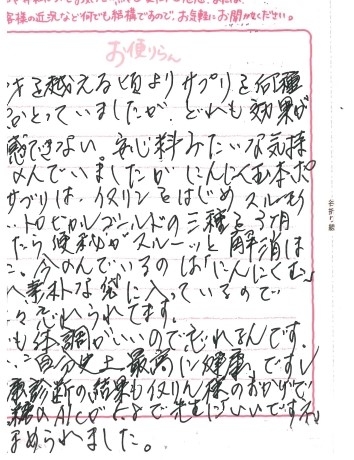 客様の近況など何でも結構ですので、お気軽にお聞かせください。
お便りらん
才を越える頃よりサプリを何種
とっていましたが、どれも効果が
感できない。安心料みたいな気持
のんでいましたがにんにく玉本舗
サプリは、イヌリンをはじめ スルもり
トロピカルゴールドの三種を3ヶ月
たら便秘がスルーッと解消ほ
今のんでいるのは「にんにく玉」
素朴な袋に入っているので
忘れられてます。
も体調がいいので忘れるんです。
自分史上最高に健康です！
康診断の結果もイヌリン様のおかげで
糖のA1Cが 先生にいいですね
ほめられました。